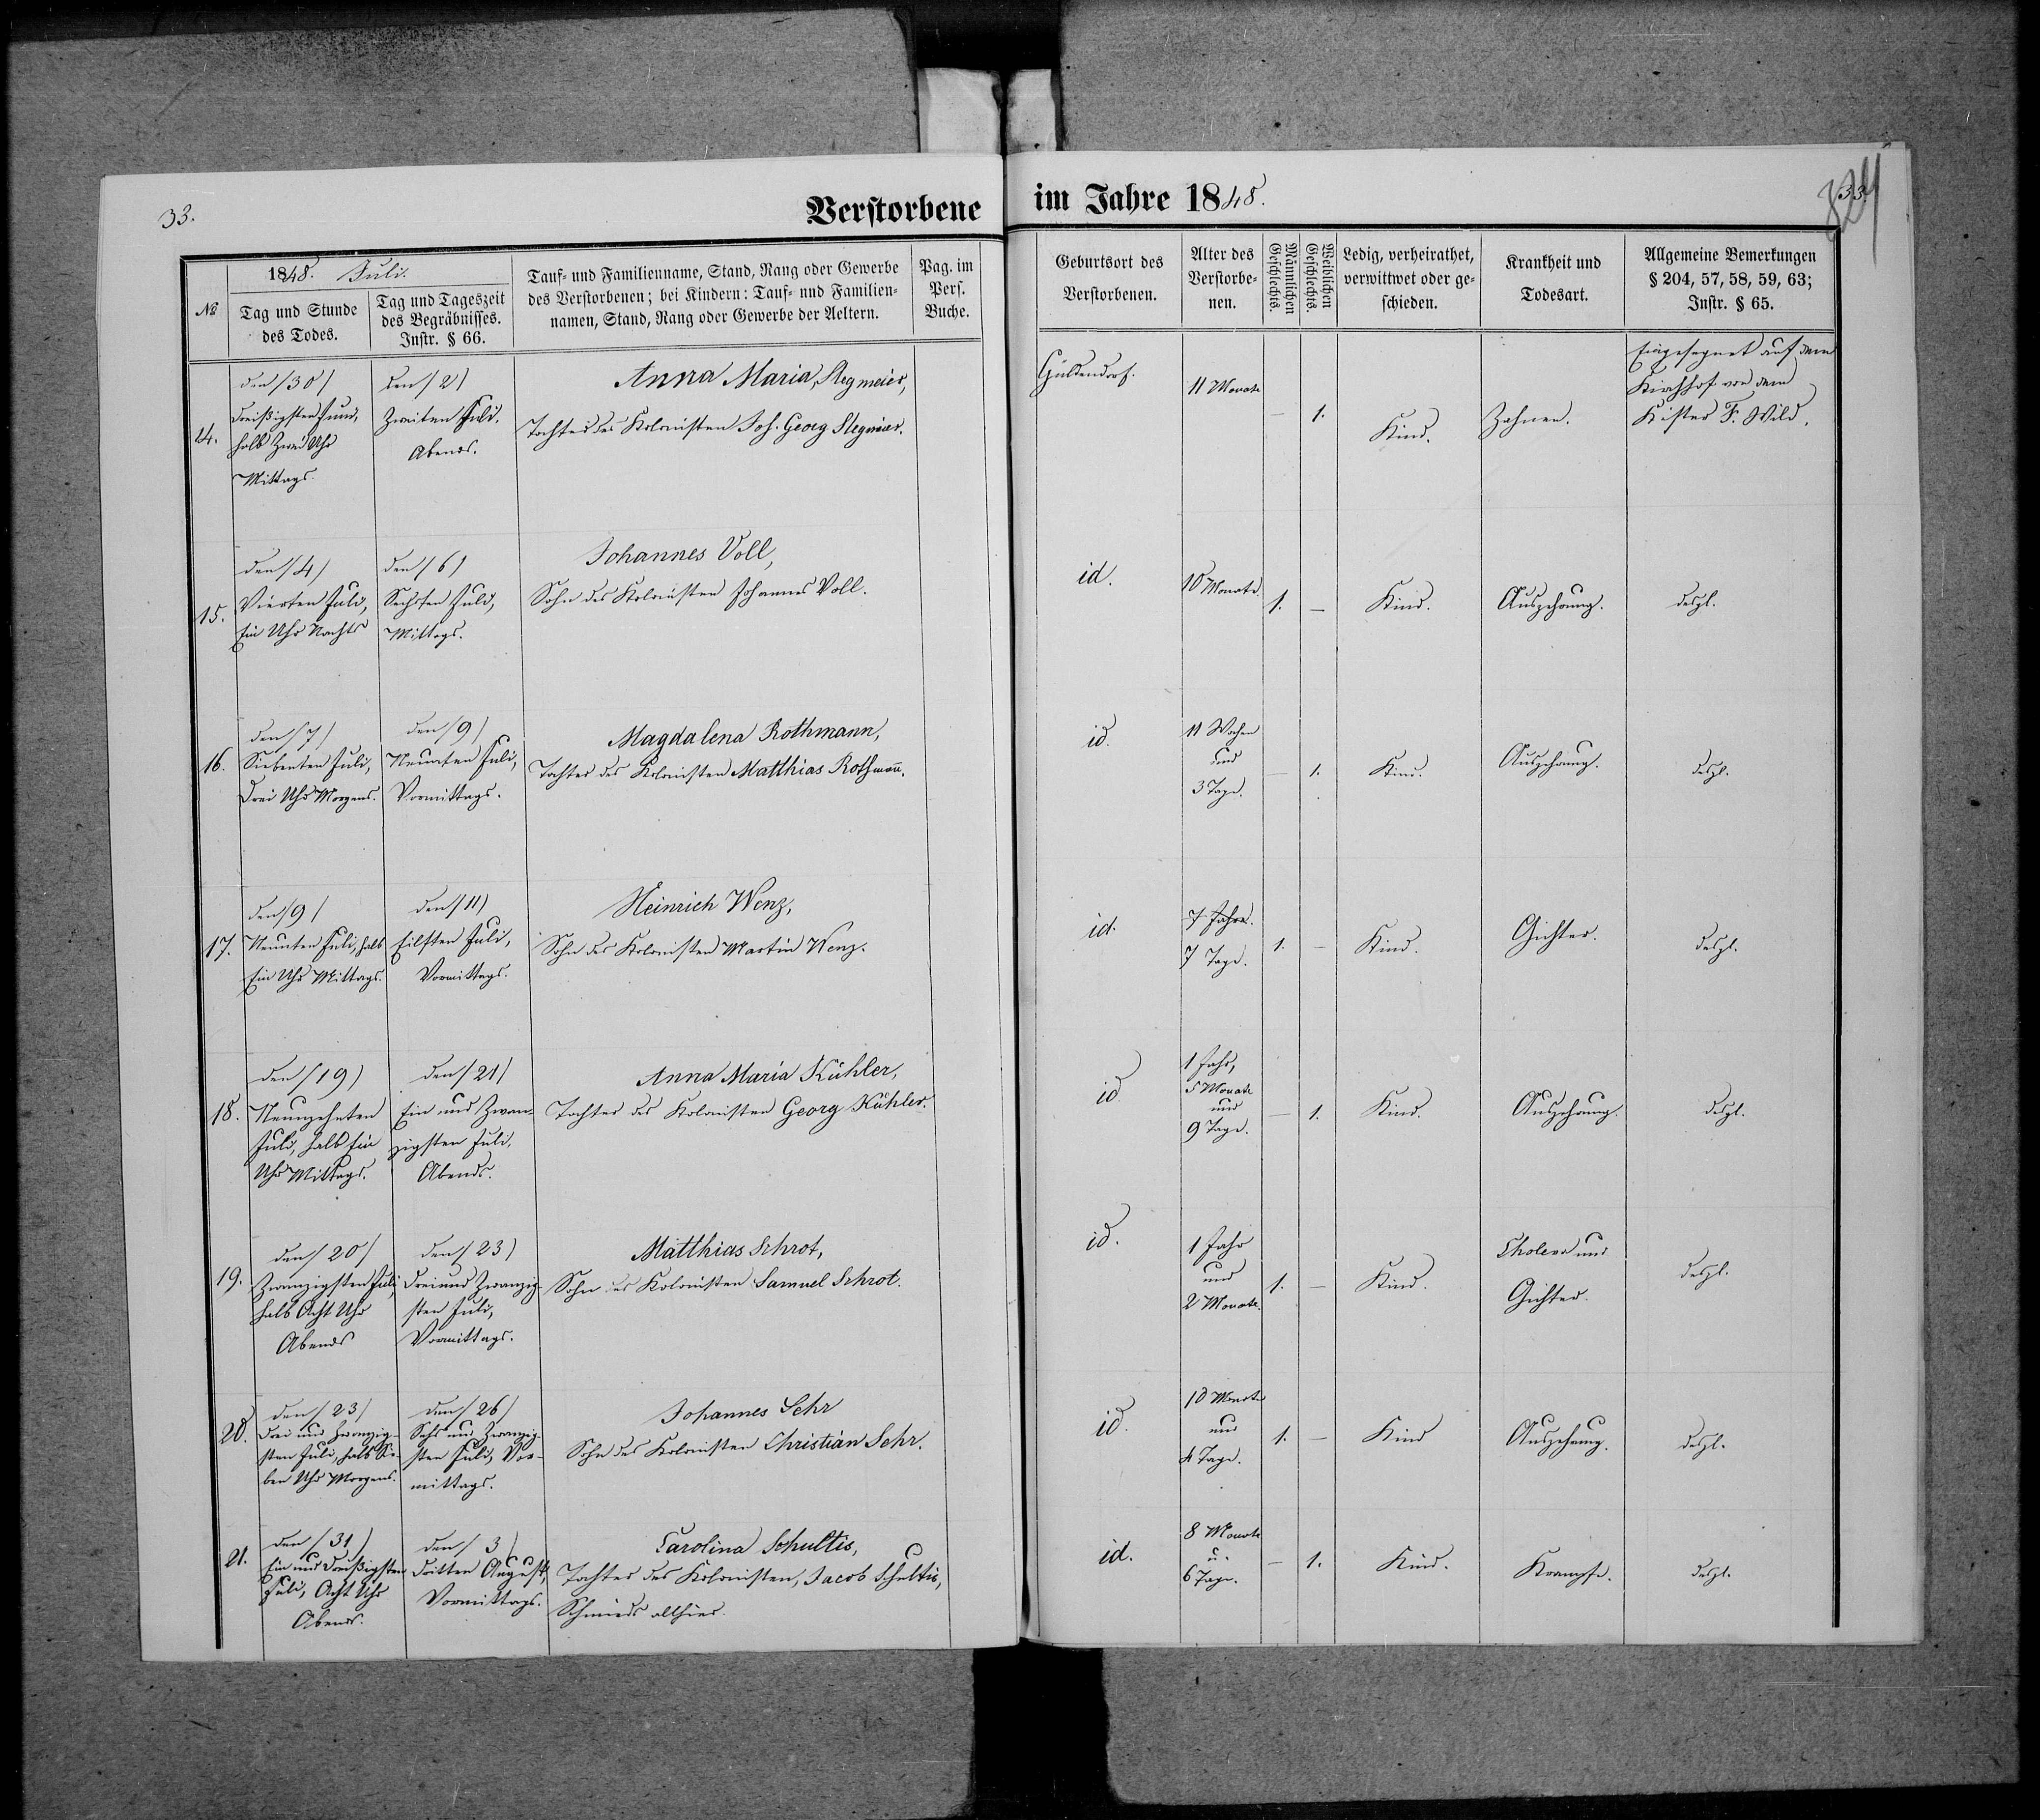 33.
Verstorbene
im Jahre 1848.
33.
1848. Juli.
№
Tag und Stunde
des Todes.
Tag und Tageszeit
des Begräbnisses.
Instr. § 66.
Tauf- und Familienname, Stand, Rang oder Gewerbe
des Verstorbenen; bei Kindern: Tauf- und Familien-
namen, Stand, Rang oder Gewerbe der Aeltern.
Pag. im
Pers.
Buche.
Geburtsort des
Verstorbenen.
Alter des
Verstorbe-
nen.
Männlichen
Geschlechts.
Weiblichen
Geschlechts.
Ledig, verheirathet,
verwittwet oder ge-
schieden.
Krankheit und
Todesart.
Allgemeine Bemerkungen
§ 204, 57, 58, 59, 63;
Instr. § 65.
14.
den /30/
Dreißigsten Juni,
halb Zwei Uhr
Mittags.
den /2/
Zweiten Juli,
Abends.
Anna Maria Stegmeier,
Tochter des Kolonisten Joh. Georg Stegmeier.
Güldendorf.
11 Monate
—
1.
Kind.
Zahnen.
Eingesegnet auf dem
Kirchhof von dem
Küster F. Wild.
15.
den /4/
Vierten Juli,
Ein Uhr Nachts
den /6/
Sechsten Juli,
Mittags.
Johannes Voll,
Sohn des Kolonisten Johannes Voll.
id.
10 Monate
1.
—
Kind.
Auszehrung.
desgl.
16.
den /7/
Siebenten Juli,
Drei Uhr Morgens.
den /9/
Neunten Juli,
Vormittags.
Magdalena Rothmann,
Tochter des Kolonisten Matthias Rothmañ.
id.
11 Wochen
und
3 Tage.
—
1.
Kind.
Auszehrung.
desgl.
17.
den /9/
Neunten Juli, halb
Ein Uhr Mittags.
den /11/
Eilften Juli,
Vormittags.
Heinrich Wenz,
Sohn des Kolonisten Martin Wenz.
id.
7 Jahre.
7 Tage.
1.
—
Kind.
Gichter.
desgl.
18.
den /19/
Neunzehnten
Juli, halb Ein
Uhr Mittags.
den /21/
Ein und Zwan-
zigsten Juli,
Abends.
Anna Maria Kühler,
Tochter des Kolonisten Georg Kühler.
id.
1 Jahr,
5 Monate
und
9 Tage.
—
1.
Kind.
Auszehrung.
desgl.
19.
den /20/
Zwanzigsten Juli,
halb Acht Uhr
Abends
den /23/
Drei und Zwanzig-
sten Juli,
Vormittags.
Matthias Schrot,
Sohn des Kolonisten Samuel Schrot.
id.
1 Jahr
und
2 Monate.
1.
—
Kind.
Cholera und
Gichter.
desgl.
20.
den /23/
Drei und Zwanzig-
sten Juli, halb Sie-
ben Uhr Morgens.
den /26/
Sechs und Zwanzig-
sten Juli, Vor-
mittags.
Johannes Sehr
Sohn des Kolonisten Christian Sehr.
id.
10 Monate
und
4 Tage.
1.
—
Kind
Auszehrung.
desgl.
21.
den /31/
Ein und Dreißigsten
Juli, Acht Uhr
Abends.
den /3/
Dritten August,
Vormittags.
Carolina Schultis,
Tochter des Kolonisten, Jacob Schultis,
Schmieds allhier.
id.
8 Monate
u.
6 Tage.
—
1.
Kind.
Krämpfe.
desgl.